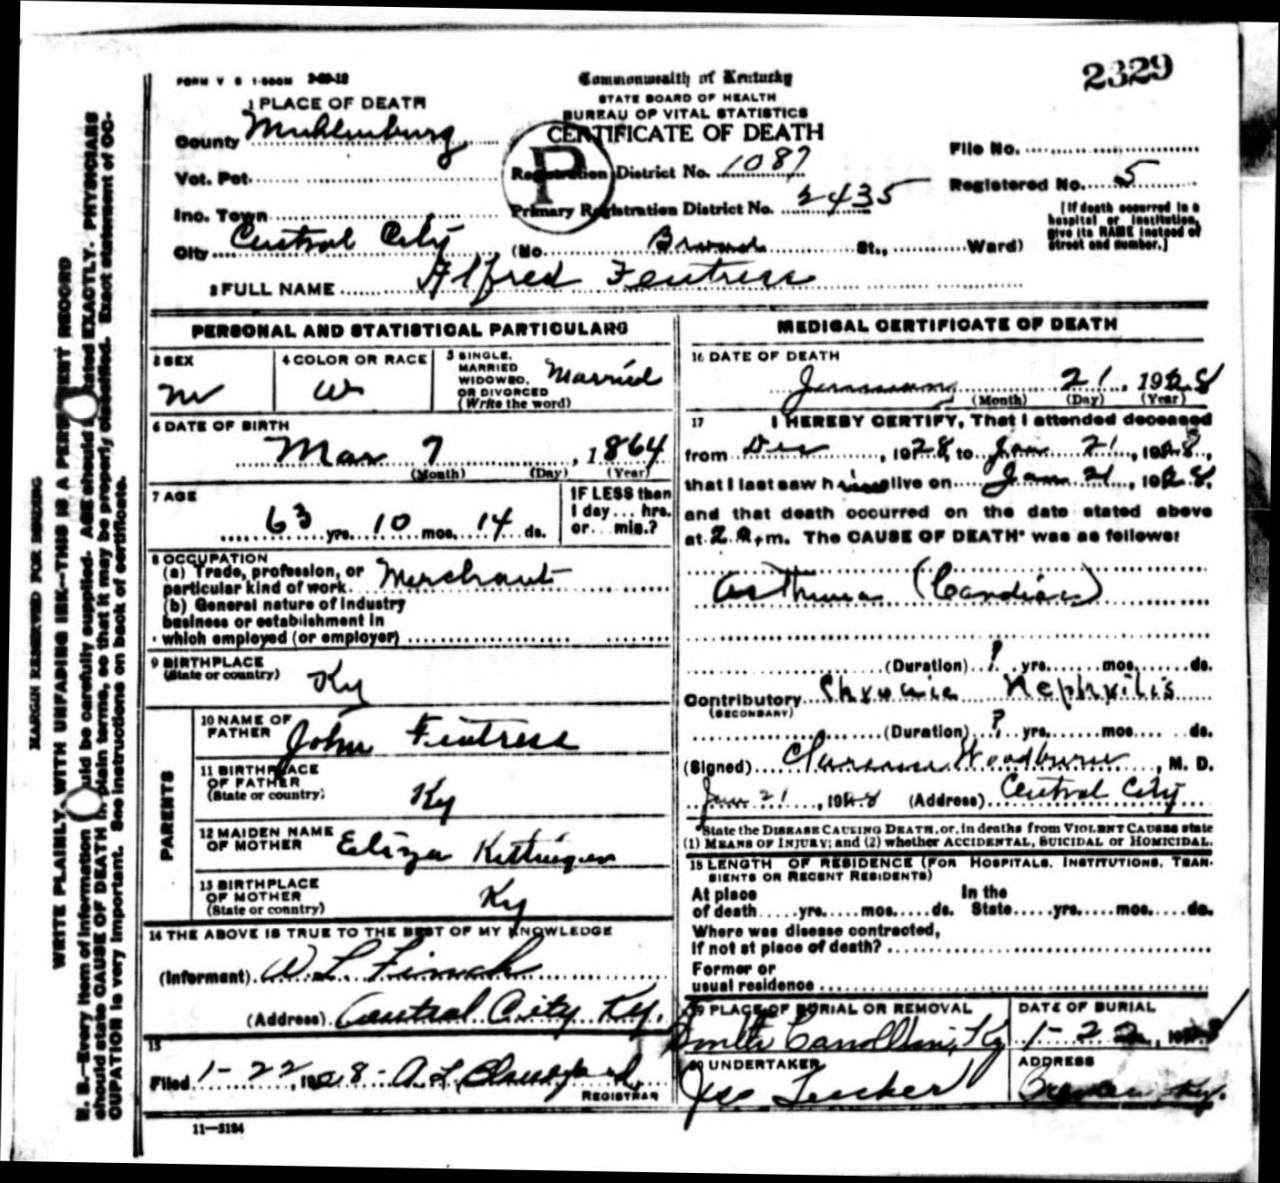 FORM V S 1-500M 2-09-12
Commonwealth of Kentucky
2329
STATE BOARD OF HEALTH
BUREAU OF VITAL STATISTICS
CERTIFICATE OF DEATH
1 PLACE OF DEATH
County Muhlenburg
Vot. Pct.
Inc. Town
City Central City (No. Broad St., Ward)
P
Registration District No. 1087
Primary Registration District No. 2435
File No.
Registered No. 5
[If death occurred in a
hospital or institution,
give its NAME instead of
street and number.]
2 FULL NAME Alfred Fentress
PERSONAL AND STATISTICAL PARTICULARS
3 SEX
M
4 COLOR OR RACE
W
5 SINGLE,
MARRIED
WIDOWED,
OR DIVORCED
(Write the word)
Married
6 DATE OF BIRTH
Mar 7, 1864
(Month) (Day) (Year)
7 AGE
63 yrs. 10 mos. 14 ds.
IF LESS than
1 day... hrs.
or... min.?
8 OCCUPATION
(a) Trade, profession, or
particular kind of work. Merchant
(b) General nature of industry
business or establishment in
which employed (or employer)
9 BIRTHPLACE
(State or country)
Ky
PARENTS
10 NAME OF
FATHER
John Fentress
11 BIRTHPLACE
OF FATHER
(State or country)
Ky
12 MAIDEN NAME
OF MOTHER
Eliza
13 BIRTHPLACE
OF MOTHER
(State or country)
Ky
14 THE ABOVE IS TRUE TO THE BEST OF MY KNOWLEDGE
(Informant) W L Finch
(Address) Central City Ky.
15
Filed 1-22, 1928- A. L.
REGISTRAR
11-3184
MEDICAL CERTIFICATE OF DEATH
16 DATE OF DEATH
January 21, 1928
(Month) (Day) (Year)
17 I HEREBY CERTIFY, That I attended deceased
from Dec, 1928, to Jan 21, 1928,
that I last saw him alive on Jan 21, 1928,
and that death occurred on the date stated above
at 2 a. m. The CAUSE OF DEATH* was as follows:
Asthma (Cardiac)
(Duration) ? yrs. mos. ds.
Contributory Chronic Nephritis
(SECONDARY)
(Duration) ? yrs. mos. ds.
(Signed) Clarence Woodburn, M. D.
Jan 21, 1928 (Address) Central City
*State the DISEASE CAUSING DEATH, or, in deaths from VIOLENT CAUSES state
(1) MEANS OF INJURY; and (2) whether ACCIDENTAL, SUICIDAL or HOMICIDAL.
18 LENGTH OF RESIDENCE (FOR HOSPITALS, INSTITUTIONS, TRAN-
SIENTS OR RECENT RESIDENTS)
At place of death yrs. mos. ds. In the State yrs. mos. ds.
Where was disease contracted,
if not at place of death?
Former or
usual residence
19 PLACE OF BURIAL OR REMOVAL
Ky
DATE OF BURIAL
1-22, 1928
20 UNDERTAKER
Tucker
ADDRESS
Bremen Ky.
MARGIN RESERVED FOR BINDING
WRITE PLAINLY, WITH UNFADING INK—THIS IS A PERMANENT RECORD
N. B.—Every item of information should be carefully supplied. AGE should be stated EXACTLY. PHYSICIANS
should state CAUSE OF DEATH in plain terms, so that it may be properly classified. Exact statement of OC-
CUPATION is very important. See instructions on back of certificate.